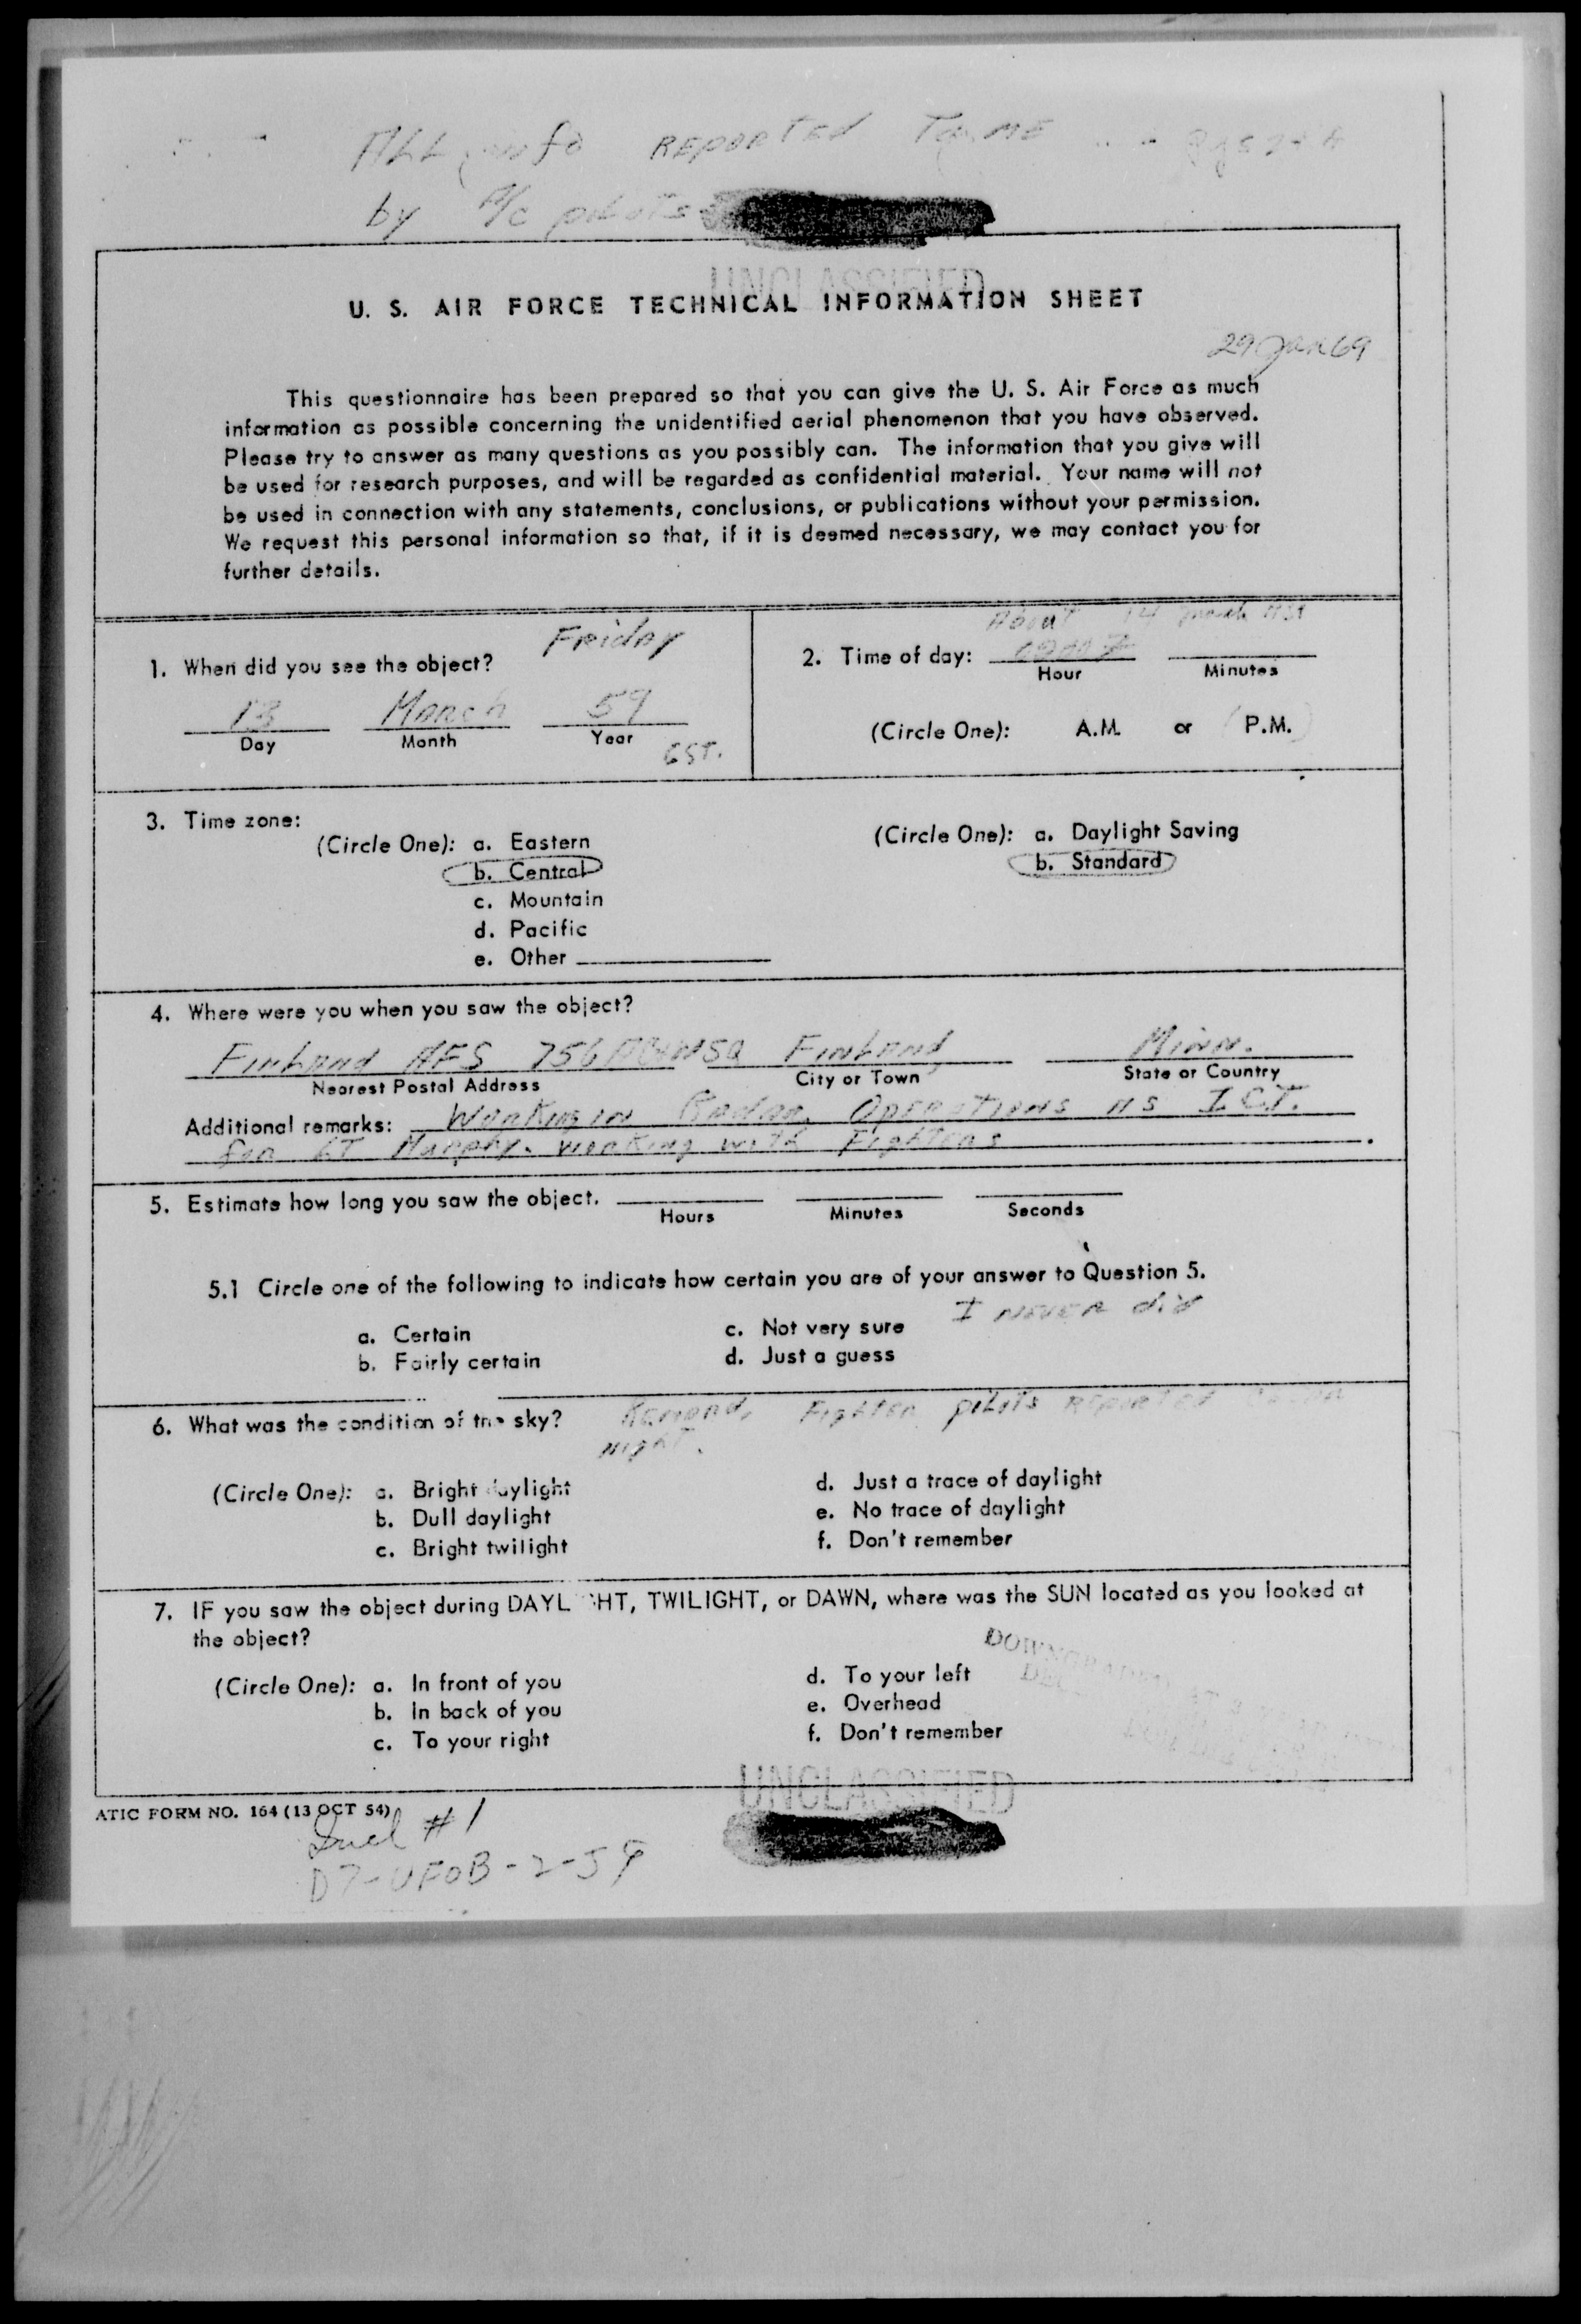 ALL info REPORTED To ME
by A/c pilots
UNCLASSIFIED
U. S. AIR FORCE TECHNICAL INFORMATION SHEET
29 Jan 69
This questionnaire has been prepared so that you can give the U. S. Air Force as much
information as possible concerning the unidentified aerial phenomenon that you have observed.
Please try to answer as many questions as you possibly can. The information that you give will
be used for research purposes, and will be regarded as confidential material. Your name will not
be used in connection with any statements, conclusions, or publications without your permission.
We request this personal information so that, if it is deemed necessary, we may contact you for
further details.
Friday
1. When did you see the object?
13 March 59
Day Month Year
CST.
About 14
2. Time of day:
Hour Minutes
(Circle One): A.M. or P.M.
3. Time zone:
(Circle One): a. Eastern
b. Central
c. Mountain
d. Pacific
e. Other
(Circle One): a. Daylight Saving
b. Standard
4. Where were you when you saw the object?
Finland AFS 756 Finland Minn.
Nearest Postal Address City or Town State or Country
Additional remarks: Working in Radar Operations as I.C.T.
for LT Murphy. working with Fighters
5. Estimate how long you saw the object.
Hours Minutes Seconds
5.1 Circle one of the following to indicate how certain you are of your answer to Question 5.
I NEVER did
a. Certain
b. Fairly certain
c. Not very sure
d. Just a guess
6. What was the condition of the sky? Fighter pilots Reported
night.
(Circle One): a. Bright daylight
b. Dull daylight
c. Bright twilight
d. Just a trace of daylight
e. No trace of daylight
f. Don't remember
7. IF you saw the object during DAYLIGHT, TWILIGHT, or DAWN, where was the SUN located as you looked at
the object?
(Circle One): a. In front of you
b. In back of you
c. To your right
d. To your left
e. Overhead
f. Don't remember
UNCLASSIFIED
ATIC FORM NO. 164 (13 OCT 54)
Incl #1
D7-UFOB-2-59